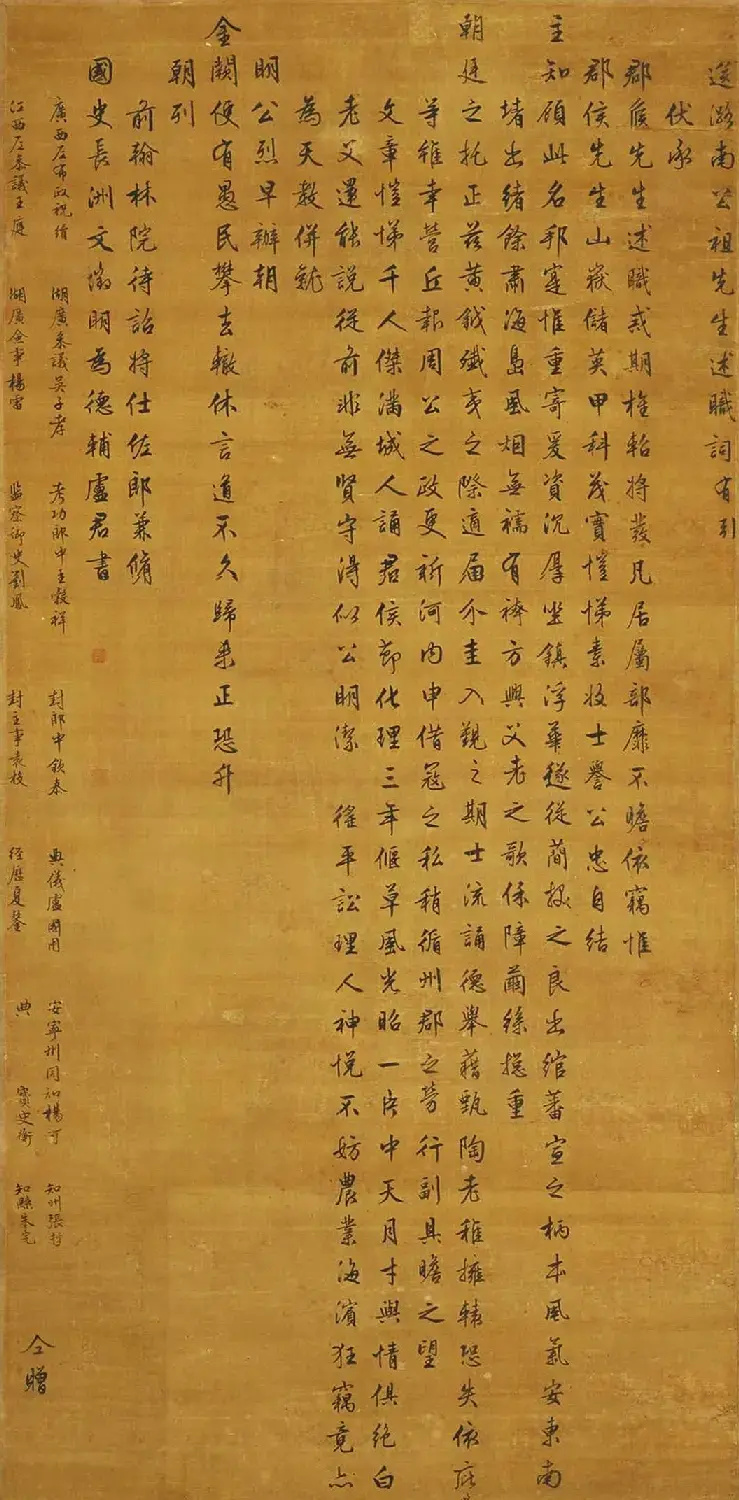 送潞南公祖先生述職詞有引
伏承
郡侯先生述職戒期旌軺將發凡居屬部靡不瞻依竊惟
郡侯先生山嶽儲英甲科茂實愷悌素收士譽公忠自結
主知顧此名邦寔惟重寄爰資沉厚坐鎮浮華遂從簡拔之良出綰蕃宣之柄本風氣安東南
堵出緒餘肅海島風烟無襦有袴方興父老之歌保障繭絲搃重
朝廷之托正茲黃鉞殲夷之際適届介圭入覲之期士流誦德舉藉甄陶老稚擁轅恐失依庇
等雖幸營丘報周公之政更祈河內申借寇之私稍循州郡之勞行副具瞻之望
文章愷悌千人傑滿城人誦君侯節化理三年偃草風光昭一活中天月才與情俱絕白
老父還能說從前非無賢守得似公明潔 徭平訟理人神悅不妨農業海濱狂竊竟亦
為天教併就
明公烈早辦朝
金闕便有愚民攀去轍休言道不久歸來正恐升
朝列
前翰林院待詔將仕佐郎兼脩
國史長洲文徵明為德輔盧君書
廣西左布政祝續 湖廣叅議吳子孝 考功郎中王穀祥 封郎中錢泰 典儀盧國用 安寧州同知楊可 知州張封
江西左叅議王庭 湖廣僉事楊雷 監察御史劉鳳 封主事袁校 經歷夏鍪 典寶史衛 知縣朱完
仝贈